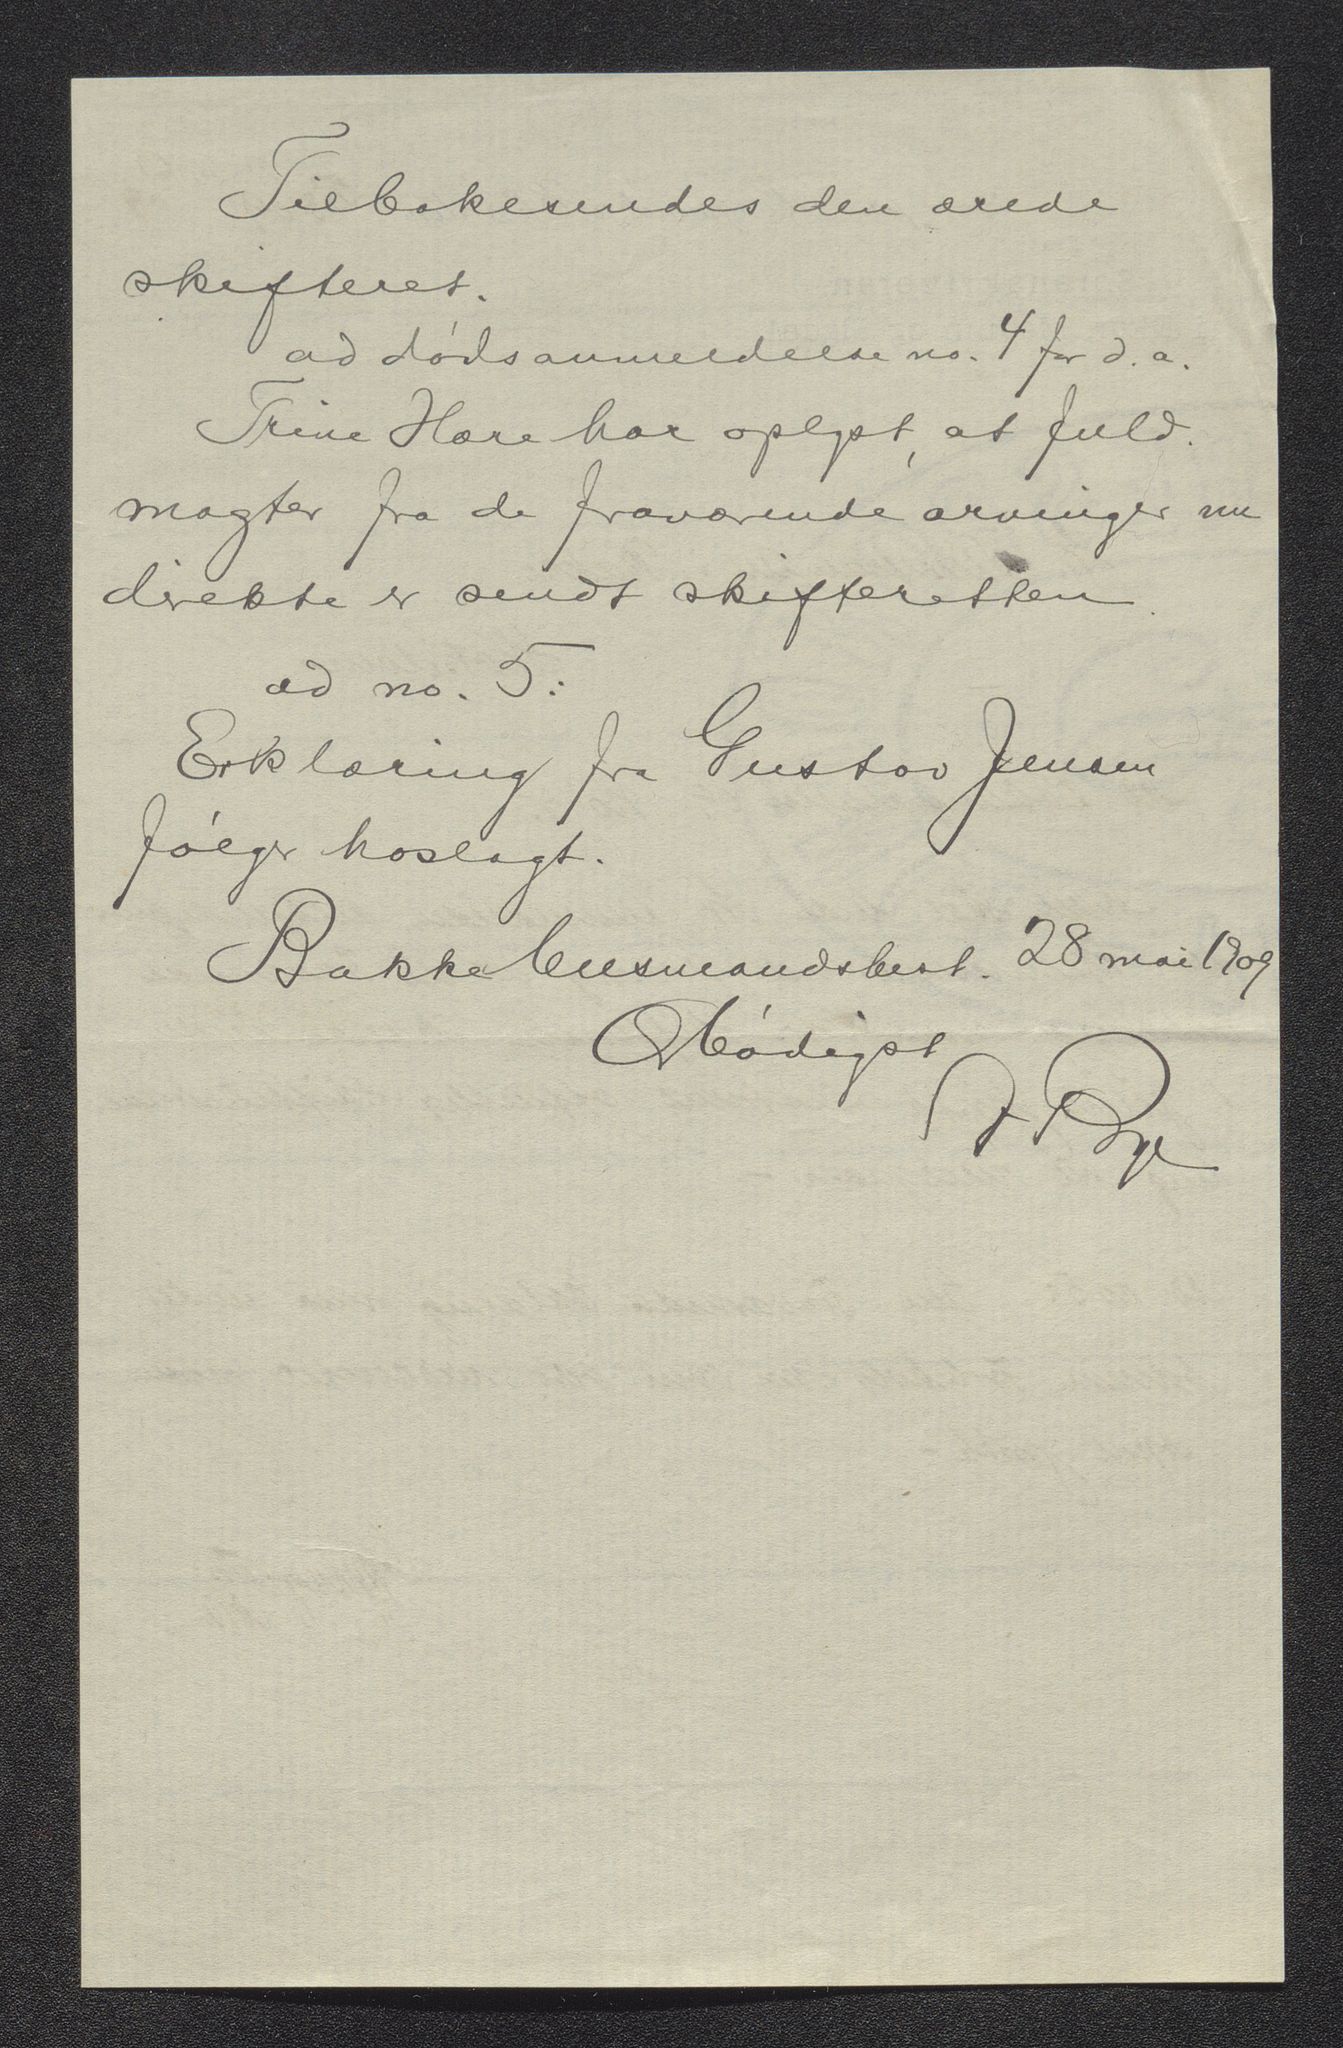 Tilbakesendes den ærede
skifteret.
ad dødsanmeldelse no. 4 for d. a.
Trine Hære har oplyst, at fuld.
magter fra de fraværende arvinger nu
direkte er sendt skifteretten.
ad no. 5:
Erklæring fra Gustav Jensen
følger hoslagt.
Bakke lensmandsbest. 28 mai 1909
Ærbødigst
Rye